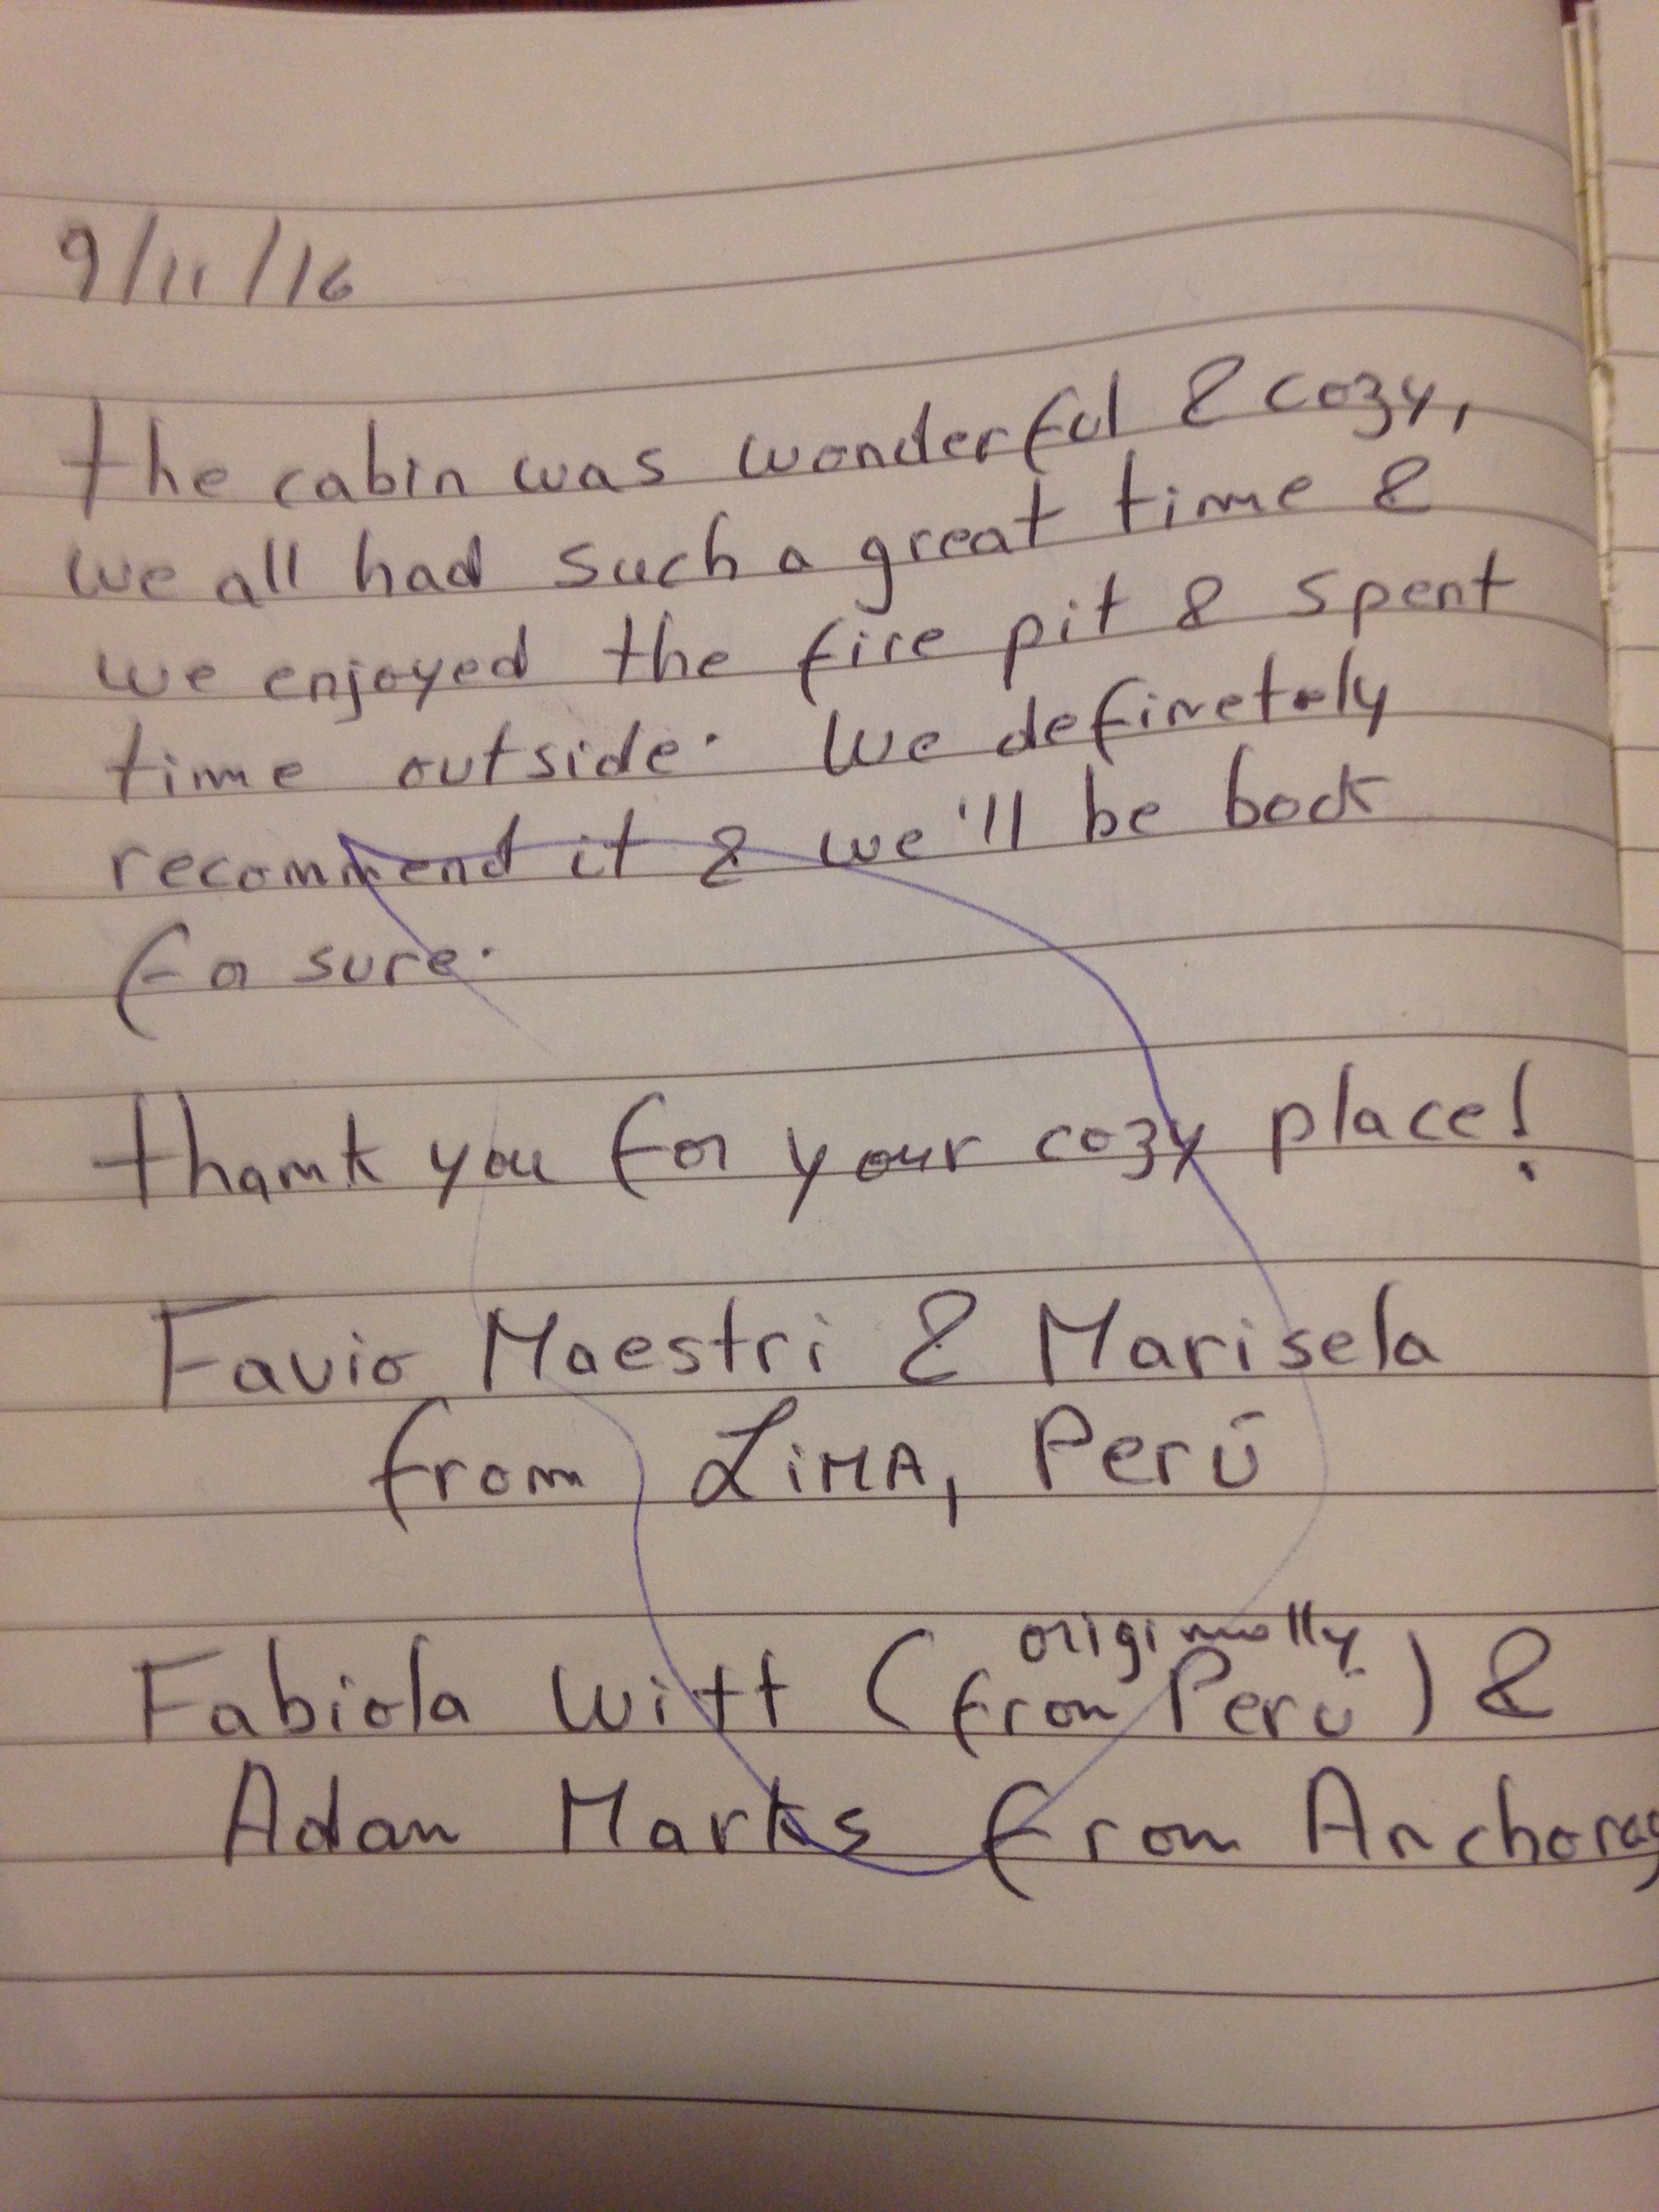 9/11/16
The cabin was wonderful & cozy,
we all had such a great time &
we enjoyed the fire pit & spent
time outside. We definetely
recommend it & we'll be back
for sure.
Thank you for your cozy place!
Favio Maestri & Marisela
from LIMA, Perú
originally
Fabiola Witt (from Perú) &
Adam Marks from Anchorag